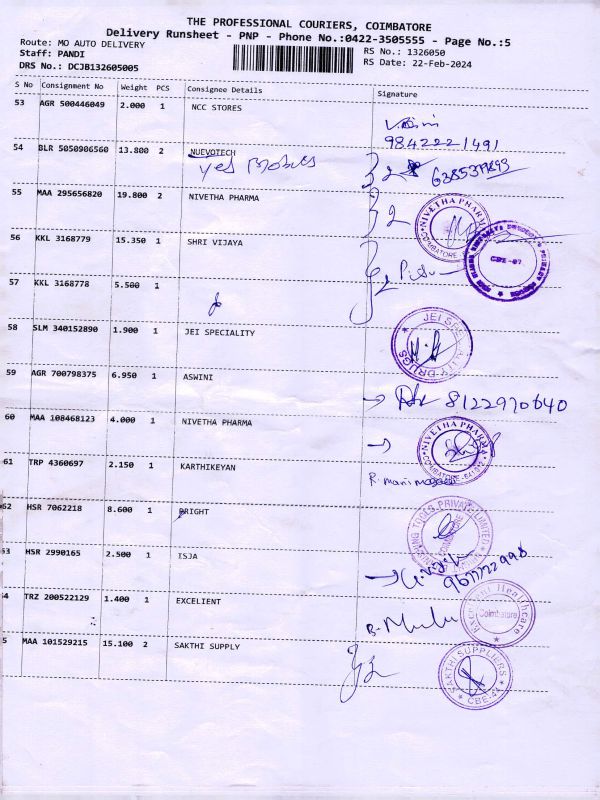 THE PROFESSIONAL COURIERS, COIMBATORE
Delivery Runsheet - PNP - Phone No.:0422-3505555 - Page No.:5
Route: MO AUTO DELIVERY
RS No.: 1326050
Staff: PANDI
RS Date: 22-Feb-2024
DRS No.: DCJB132605005
S No Consignment No Weight PCS Consignee Details Signature
53 AGR 500446049 2.000 1 NCC STORES
9842221491
54 BLR 5050906560 13.800 2 NUEVOTECH
yes Mobiles
2
55 MAA 295656820 19.800 2 NIVETHA PHARMA
2
NIVETHA PHARMA
COIMBATORE
56 KKL 3168779 15.350 1 SHRI VIJAYA
2
CBE-07
57 KKL 3168778 5.500 1
58 SLM 340152890 1.900 1 JEI SPECIALITY
JEI SPECIALITY DRUGS
59 AGR 700798375 6.950 1 ASWINI
8122970640
60 MAA 108468123 4.000 1 NIVETHA PHARMA
NIVETHA PHARMA
COIMBATORE
61 TRP 4360697 2.150 1 KARTHIKEYAN
62 HSR 7062218 8.600 1 BRIGHT
TOOLS PRIVATE LIMITED
COIMBATORE
53 HSR 2990165 2.500 1 ISJA
4 TRZ 200522129 1.400 1 EXCELIENT
Healthcare
Coimbatore
5 MAA 101529215 15.100 2 SAKTHI SUPPLY
2
SAKTHI SUPPLIERS
CBE-44